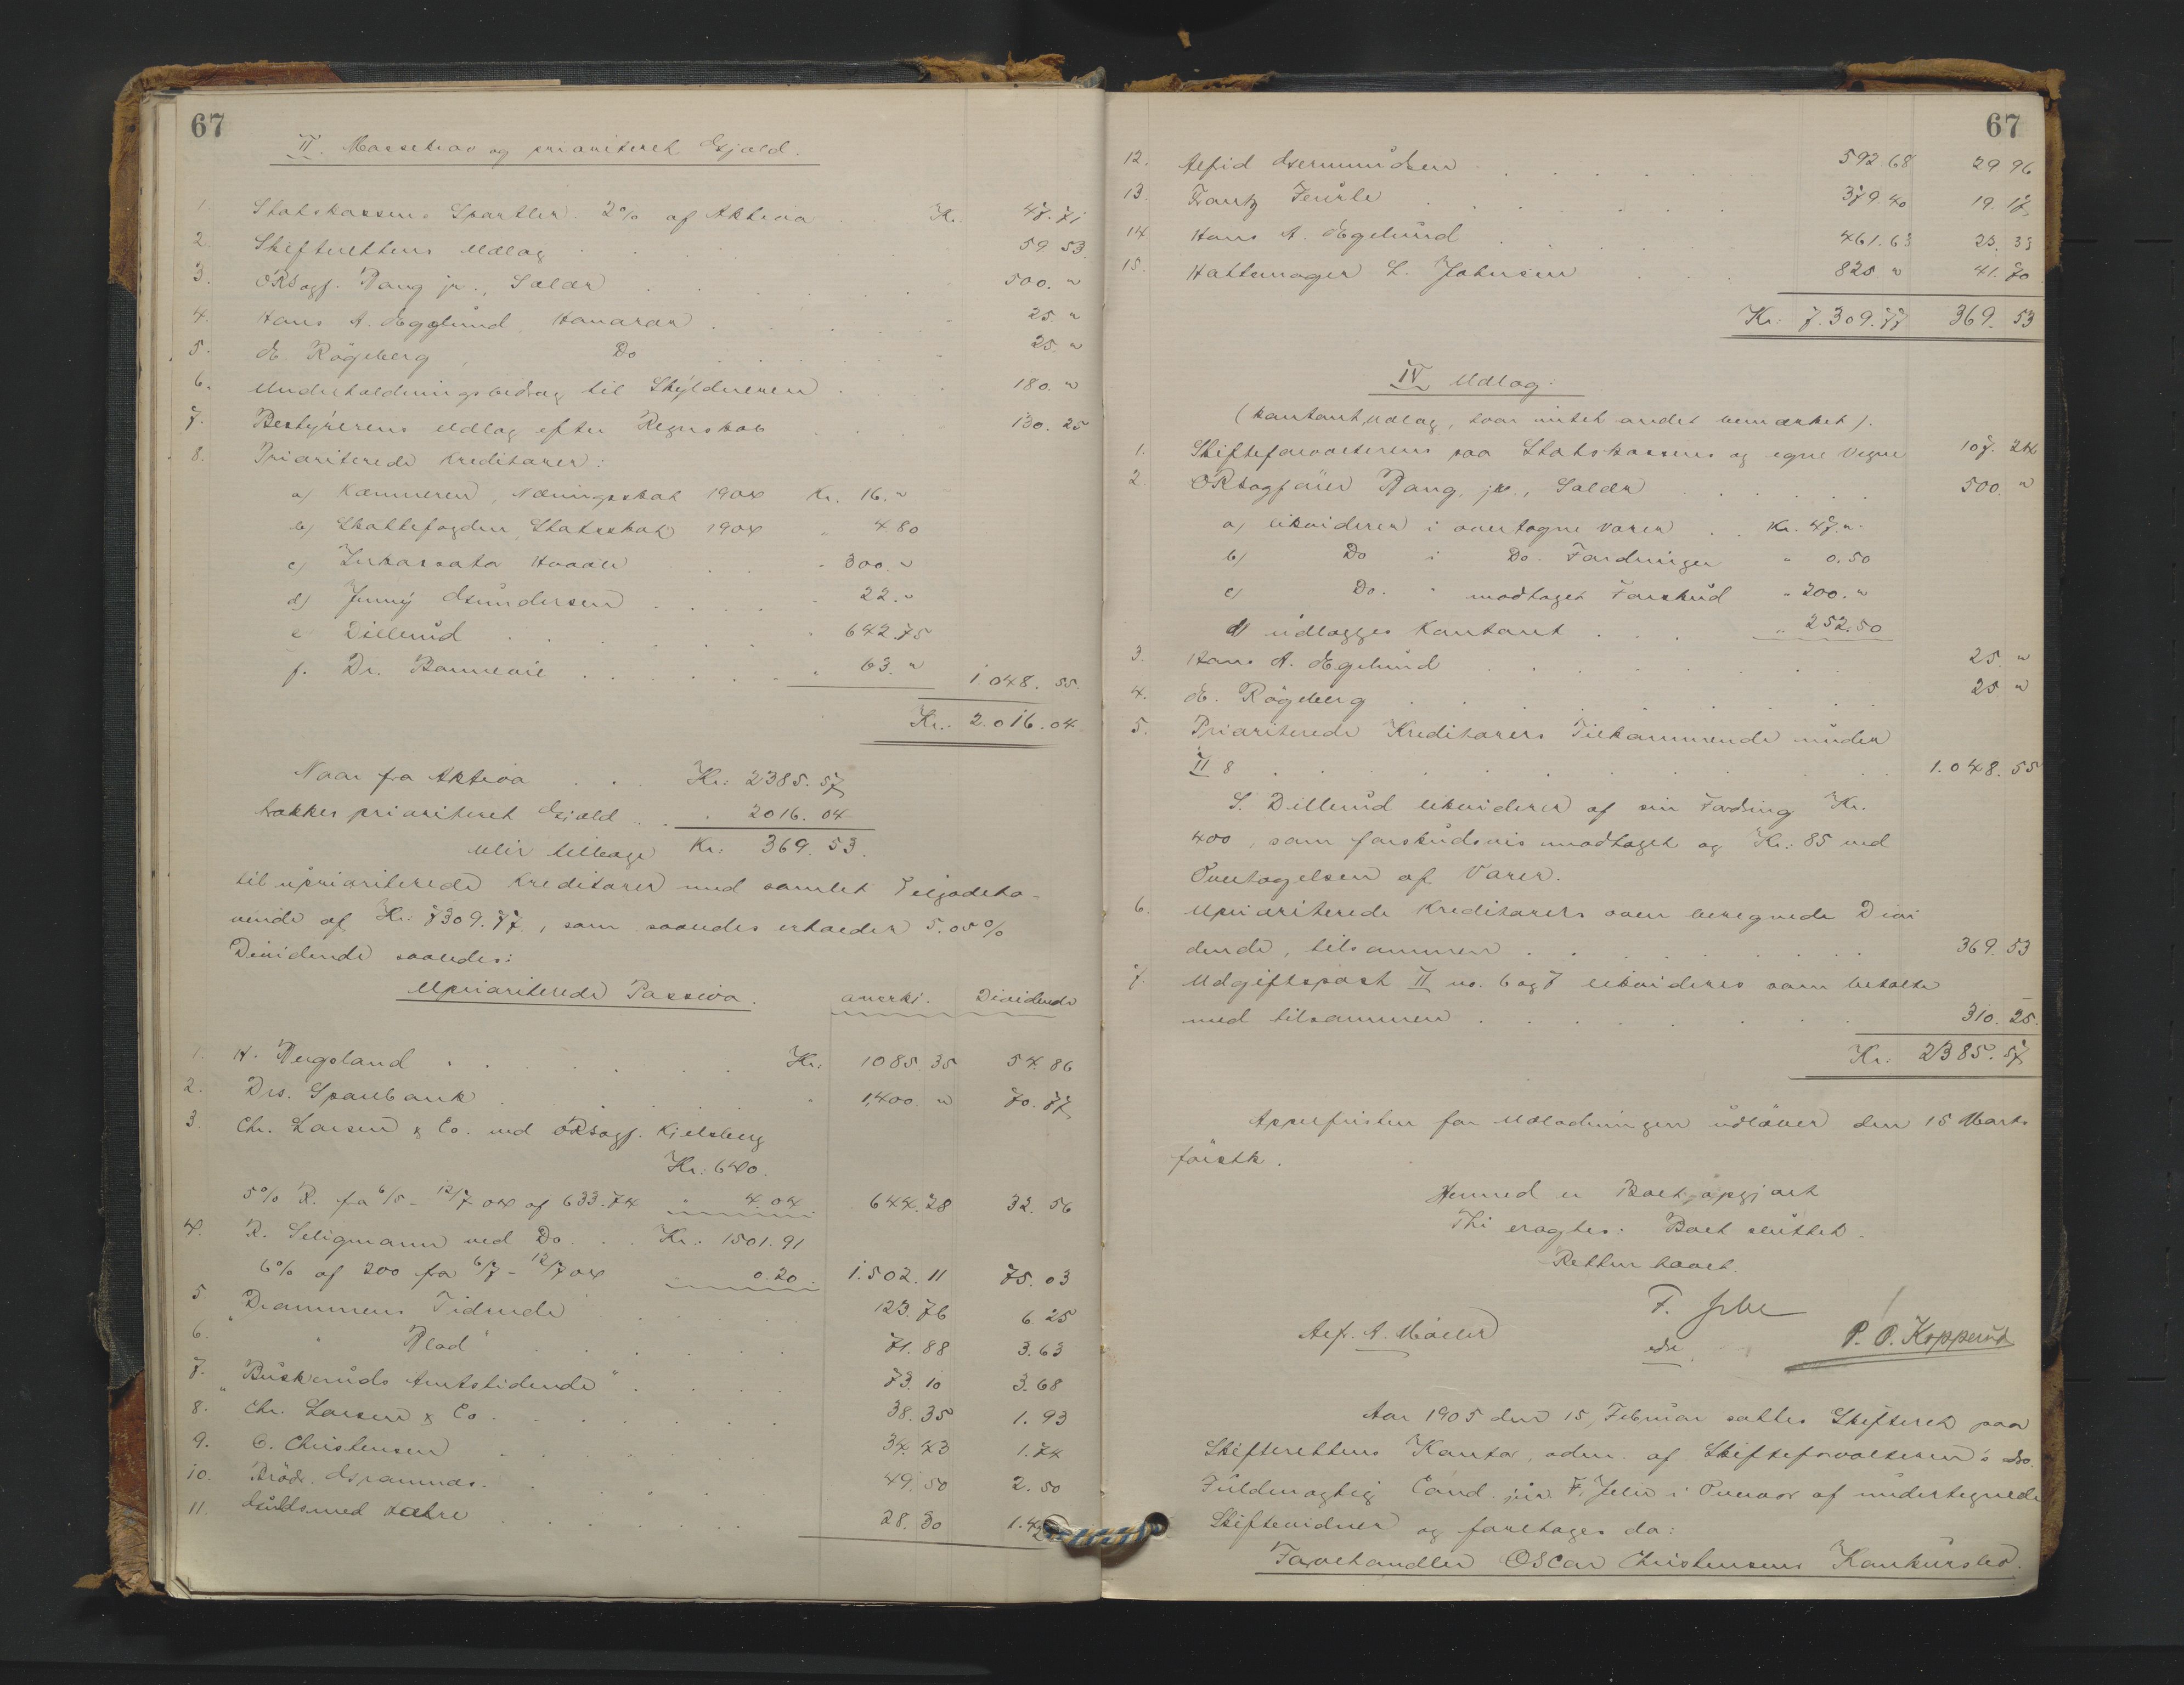 67
II. Massekrav og prioriteret Gjæld.
1. Statskassens Sportler. 2% af Aktiva . . Kr. 47.71
2. Skifterettens Udlæg . . . . 59 53.
3. ORSagf. Bang jr., Salær . . . . 500. "
4. Hans A. Egelund, Honorar . . . . 25. "
5. E. Rögeberg, Do . . . . 25. "
6. Underholdningsbidrag til Skyldneren . . 180. "
7. Bestyrerens Udlæg efter Regnskab . . . 130. 25
8. Prioriterede Kreditorer:
a) Kæmneren, Næringsskat 1904 Kr. 16. "
b) Skattefogden, Statsskat 1904 " 4 80
c) Inkassator Haaver . . . " 300. "
d) Jenny Gundersen . . . " 22. "
e) Dillerud . . . " 642.75
f. Dr. Bonnevie . . . . " 63. " 1 048. 55.
Kr. 2.016.04
Naar fra Aktiva . . Kr: 2385.57
trækkes prioriteret Gjæld . . " 2016.04
blir tilbage Kr: 369. 53.
til uprioriterede Kreditorer med samlet Tilgodeha-
vende af Kr: 7309.77., som saaledes erholder 5.05%
Dividende saaledes:
Uprioriterede Passiva. anerkj. Dividende
1. H. Bergsland . . . . . Kr. 1085 35 54 86
2. Drs. Sparebank . . . . . 1,400 " 70. 77
3. Chr. Larsen & Co. ved ORSagf. Kjelsberg
Kr: 640.
5% R. fra 6/5 - 12/7 04 af 633.74 " 4.04 644.28 32. 56
4. R. Seligmann ved Do . . . Kr: 1501.91
6% af 200 fra 6/7 - 12/7 04 0.20. 1.502. 11 75. 03
5. "Drammens Tidende . . . . 123.76 6.25
6. " Blad" . . . . 71.88 3.63
7. "Buskeruds Amtstidende" . . . . 73.10 3.68
8. Chr. Larsen & Co. . . . . 38.35 1.93
9. C. Christensen . . . . 34.43 1.74
10. Brödr. . . . . 49.50 2.50
11. Guldsmed Sætre . . . . 28.30 1.42
67
12. Alfid Germundsen . . . . 592.68 29 96
13. Frantz . . . . 379.40 19.17
14 Hans A. Egelund . . . . 461.63 23.33
15. Hattemager L. Johnsen . . . 825 " 41.70
Kr: 7.309.77 369. 53
IV Udlæg.
(kontant Udlæg, hvor intet andet bemærket).
1. Skifteforvalteren paa Statskassens og egne Vegne 107. 24
2. ORSagförer Bang, jr., Salær . . . . 500. "
a) likviderer i overtagne Varer . . Kr. 47. "
b) Do i Do. Fordringer " 0.50
c) Do. " modtaget Forskud " 200. "
d) udlægges Kontant . . . " 252.50
3. Hans A. Egelund . . . . 25. "
4. E. Rögeberg . . . . 25 "
5. Prioriterede Kreditorers Tilkommende under
II 8 . . . . 1.048.55
S. Dillerud likviderer af sin Fordring Kr.
400, som forskudsvis modtaget og Kr: 85 ved
Overtagelsen af Varer.
6. Uprioriterede Kreditorers oven beregnede Divi
dende, tilsammen . . . . 369.53
7. Udgiftspost II no. 6 og 7 likvideres som betalte
med tilsammen . . . . 310. 25.
Kr: 2385.57
Appelfristen for Udlodningen udlöber den 15 Marts
förstk.
Hermed er Boet opgjort
Thi eragtes: Boet sluttet.
Retten hævet.
F.
edsv
Alf. A. Möller
P. O. Kopperud
Aar 1905 den 15, Februar sattes Skifteret paa
Skifterettens Kontor, adm. af Skifteforvalterens edsv.
Fuldmægtig Cand. jur. F. i Overvær af undertegnede
Skiftevidner og foretoges da:
Farvehandler Oscar Christensens Konkursbo.